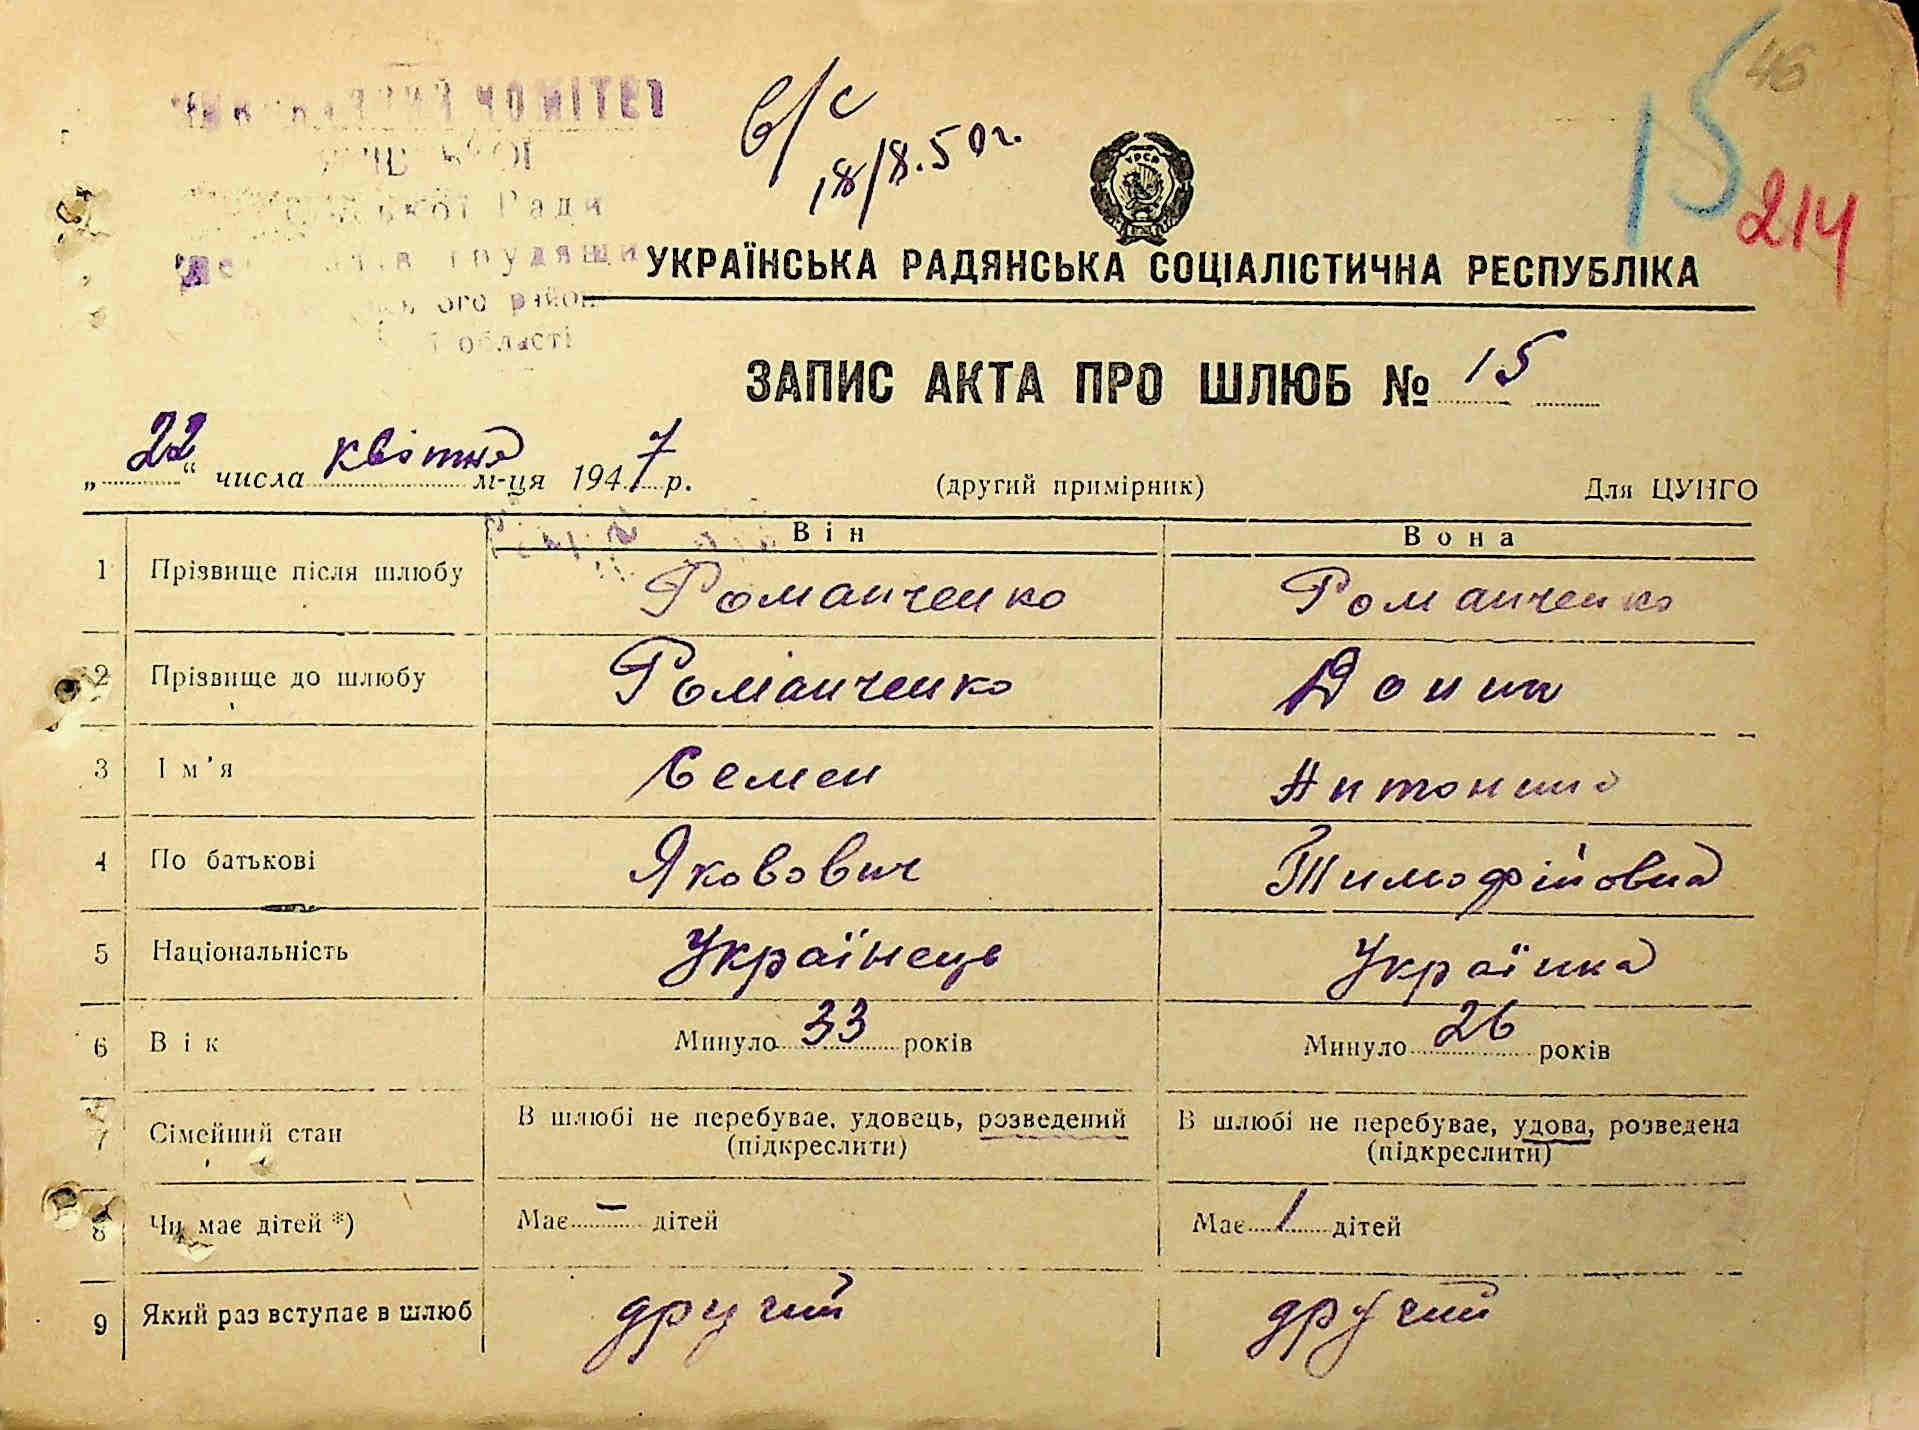 46
15
214
в/с
18/8.50г.
КОМІТЕТ
Ради
трудящих
ого район
області
УРСР
УКРАЇНСЬКА РАДЯНСЬКА СОЦІАЛІСТИЧНА РЕСПУБЛІКА
ЗАПИС АКТА ПРО ШЛЮБ № 15
„22“ числа квітня м-ця 1947 р. (другий примірник) Для ЦУНГО
Він Вона
1 Прізвище після шлюбу Романченко Романченко
2 Прізвище до шлюбу Романченко
3 Ім'я Семен Антонина
4 По батькові Якович Тимофійовна
5 Національність Українець Українка
6 Вік Минуло 33 років Минуло 26 років
7 Сімейний стан В шлюбі не перебуває, удовець, розведений В шлюбі не перебуває, удова, розведена
(підкреслити) (підкреслити)
8 Чи має дітей *) Має – дітей Має 1 дітей
9 Який раз вступає в шлюб другий другий